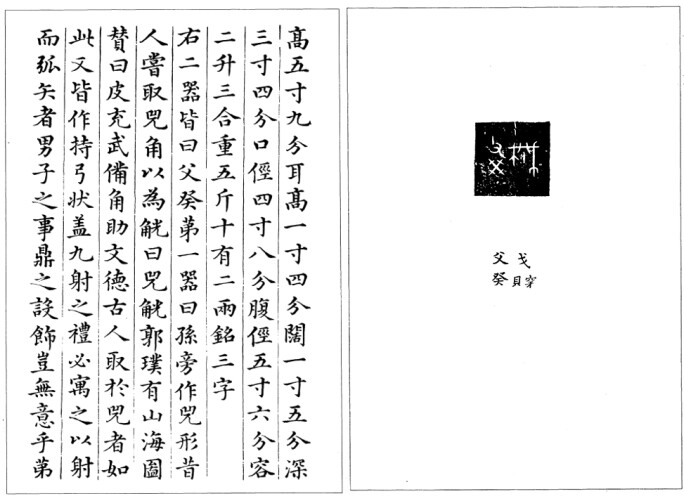 戈穿貝
父癸
髙五寸九分耳髙一寸四分闊一寸五分深
三寸四分口俓四寸八分腹俓五寸六分容
二升三合重五斤十有二兩銘三字
右二器皆曰父癸苐一器曰孫旁作兕形昔
人嘗取兕角以為觥曰兕觥郭璞有山海圖
賛曰皮充武備角助文德古人取於兕者如
此又皆作持弓狀盖九射之禮必寓之以射
而弧矢者男子之事鼎之設飾豈無意乎苐